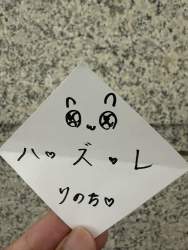 ハ♥ズ♥レ
りのち♡